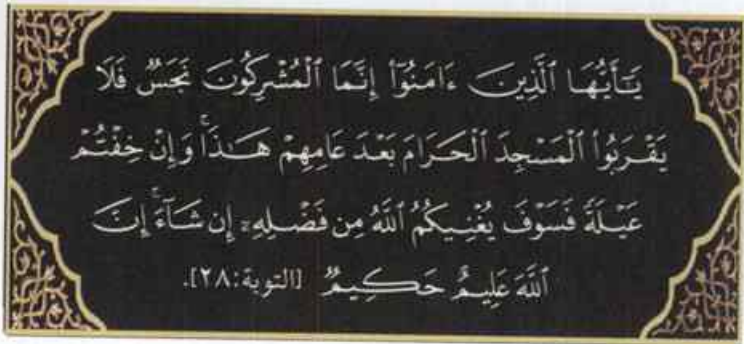 يَـٰٓأَيُّهَا ٱلَّذِينَ ءَامَنُوٓا۟ إِنَّمَا ٱلْمُشْرِكُونَ نَجَسٌ فَلَا
يَقْرَبُوا۟ ٱلْمَسْجِدَ ٱلْحَرَامَ بَعْدَ عَامِهِمْ هَـٰذَا ۚ وَإِنْ خِفْتُمْ
عَيْلَةً فَسَوْفَ يُغْنِيكُمُ ٱللَّهُ مِن فَضْلِهِۦٓ إِن شَآءَ ۚ إِنَّ
ٱللَّهَ عَلِيمٌ حَكِيمٌ [التوبة:٢٨].